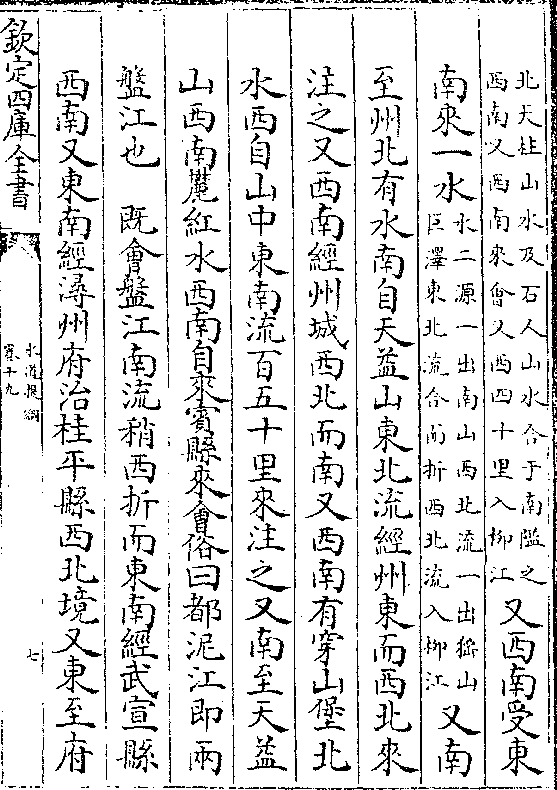 北天柱山水及石人山水合于南隘之
西南又西南來會又西四十里入柳江
又西南受東
南來一水
水二源一出南山西北流一出猺山
巨澤東北流合而折西北流入柳江
又南
至州北有水南自天葢山東北流經州東而西北來
注之又西南經州城西北而南又西南有穿山堡北
水西自山中東南流百五十里來注之又南至天葢
山西南麓紅水西南自來賓縣來會俗曰都泥江即兩
盤江也 既會盤江南流稍西折而東南經武宣縣
西南又東南經潯州府治桂平縣西北境又東至府
欽定四庫全書
水道提綱
卷十九
七